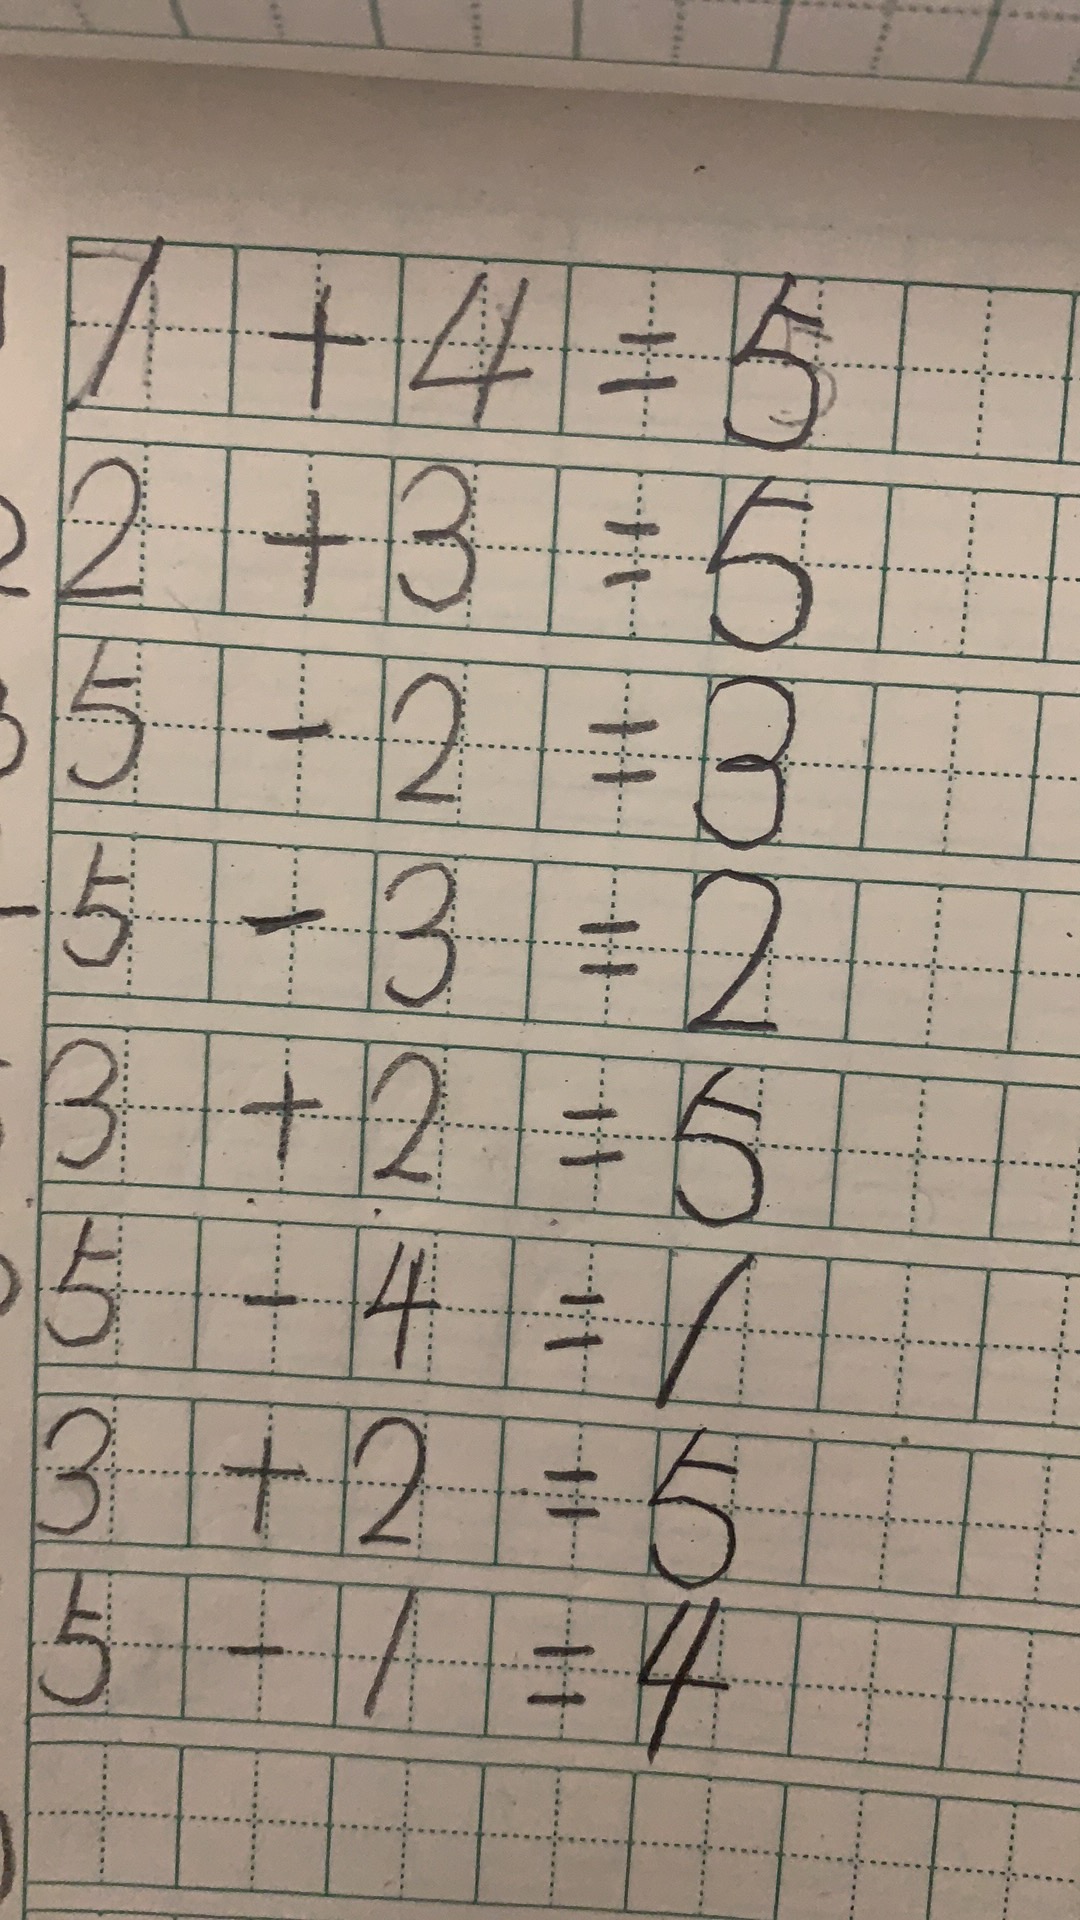 1 + 4 = 5
2 + 3 = 5
5 - 2 = 3
5 - 3 = 2
3 + 2 = 5
5 - 4 = 1
3 + 2 = 5
5 - 1 = 4